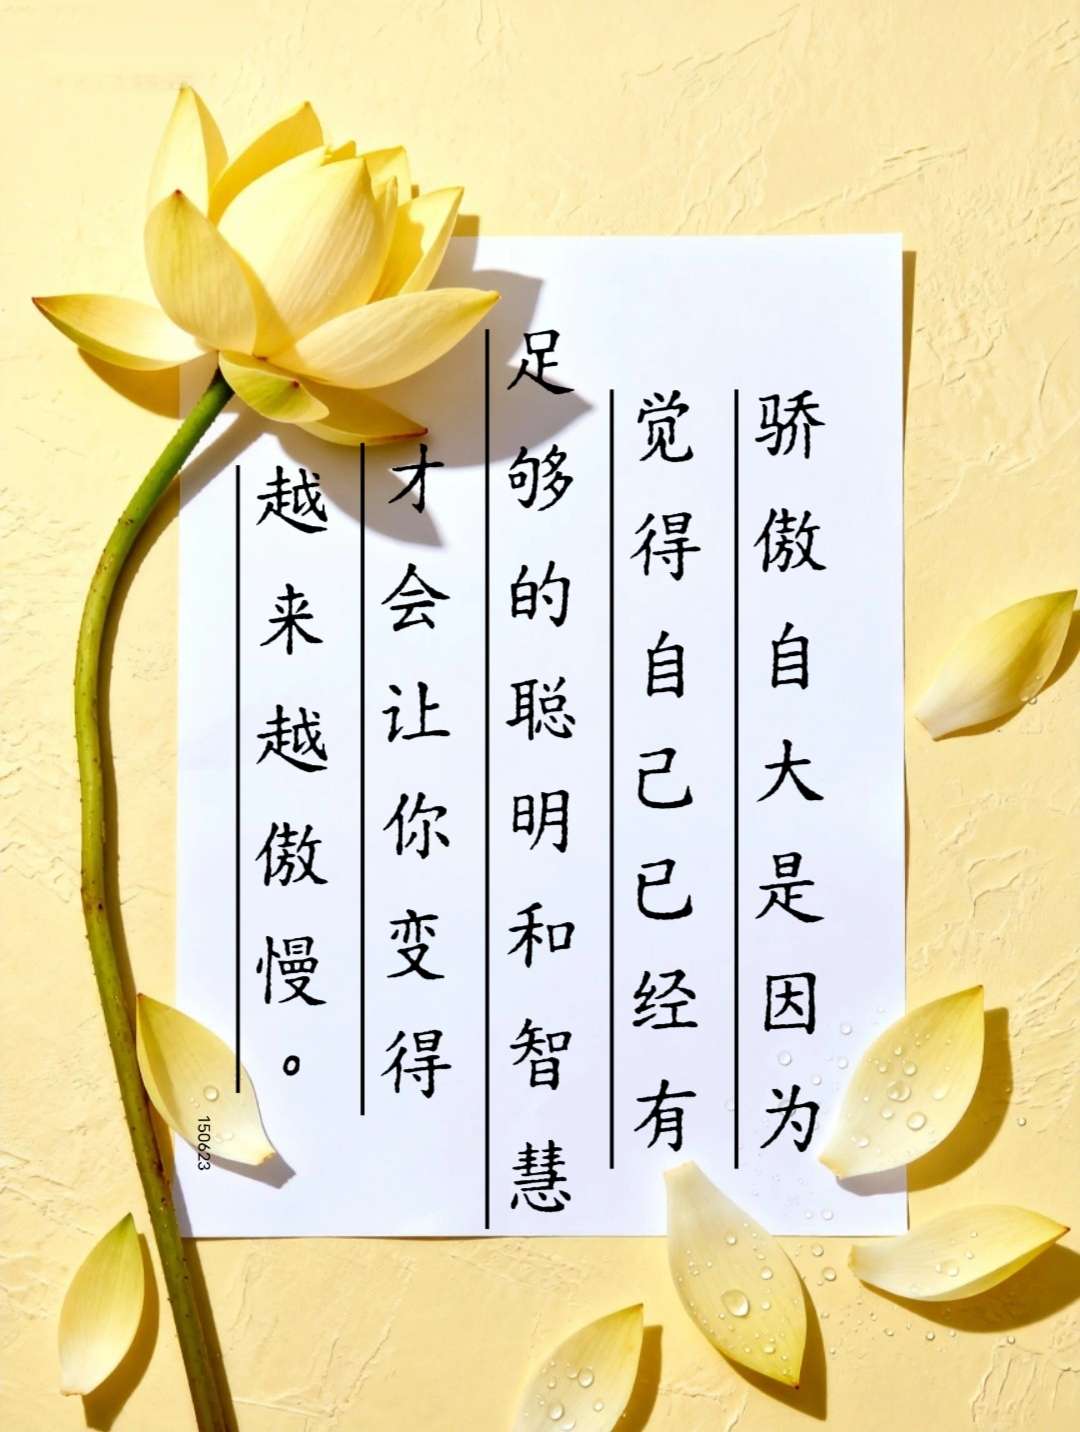 骄傲自大是因为
觉得自己已经有
足够的聪明和智慧
才会让你变得
越来越傲慢。
150623